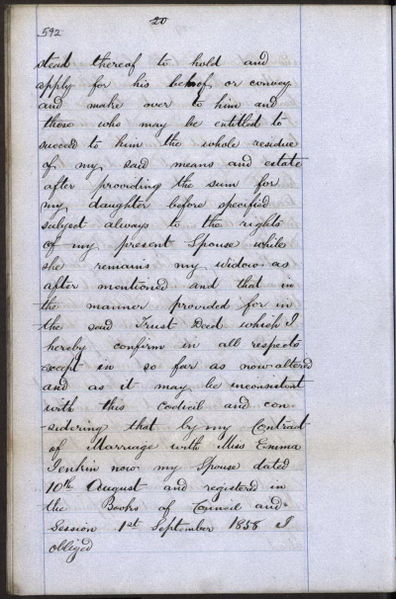 20
592
stead thereof to hold and
apply for his behoof, or convey
and make over to him and
those who may be entitled to
succeed to him the whole residue
of my said means and estate
after providing the sum for
my daughter before specified
subject always to the rights
of my present Spouse while
she remains my widow as
after mentioned and that in
the manner provided for in
the said Trust Deed which I
hereby confirm in all respects
except in so far as now altered
and as it may be inconsistent
with this codicil and con-
-sidering that by my Contract
of Marriage with Miss Emma
Jenkin now my Spouse dated
10th August and registered in
the Books of Council and
Session 1st September 1858 I
obliged